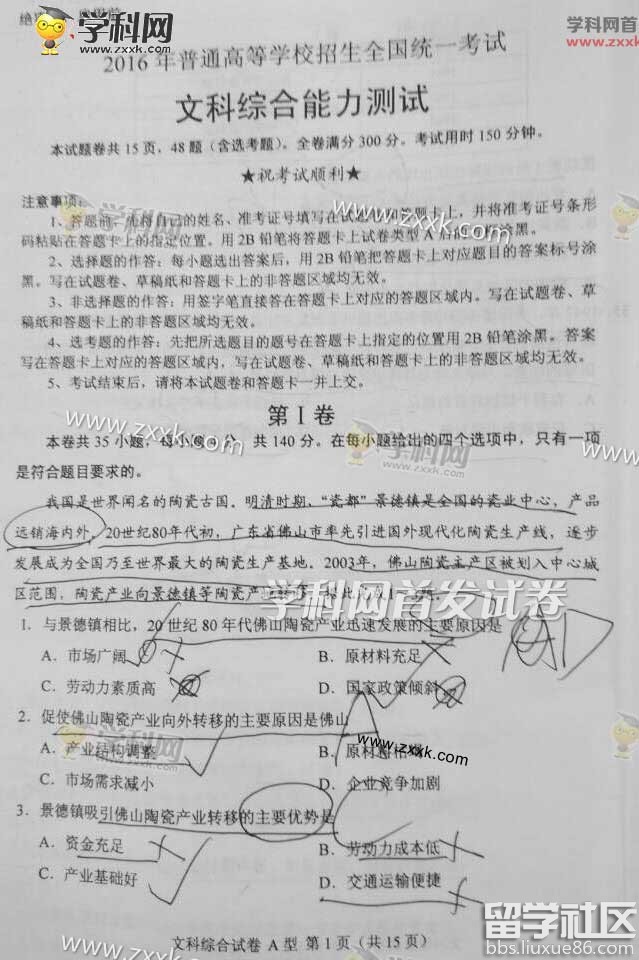 绝
学科网
www.zxxk.com
学科网
www.zxxk
2016年普通高等学校招生全国统一考试
文科综合能力测试
本试题卷共15页,48题(含选考题)。全卷满分300分。考试用时150分钟。
★祝考试顺利★
注意事项:
学科网
www.zxxk.com
1、答题前,先将自己的姓名、准考证号填写在试题卷和答题卡上,并将准考证号条形
码粘贴在答题卡上的指定位置。用2B铅笔将答题卡上试卷类型A后的方框涂黑。
2、选择题的作答:每小题选出答案后,用2B铅笔把答题卡上对应题目的答案标号涂
黑。写在试题卷、草稿纸和答题卡上的非答题区域均无效。
3、非选择题的作答:用签字笔直接答在答题卡上对应的答题区域内。写在试题卷、草
稿纸和答题卡上的非答题区域均无效。
4、选考题的作答:先把所选题目的题号在答题卡上指定的位置用2B铅笔涂黑。答案
写在答题卡上对应的答题区域内,写在试题卷、草稿纸和答题卡上的非答题区域均无效。
5、考试结束后,请将本试题卷和答题卡一并上交。
第Ⅰ卷
www.zxxk.com
学科网
zxxk.com
本卷共35小题,每小题 分,共140分。在每小题给出的四个选项中,只有一项
是符合题目要求的。
我国是世界闻名的陶瓷古国。明清时期,“瓷都”景德镇是全国的瓷业中心,产品
远销海内外。20世纪80年代初,广东省佛山市率先引进国外现代化陶瓷生产线,逐步
发展成为全国乃至世界最大的陶瓷生产基地。2003年,佛山陶瓷主产区被划入中心城
区范围,陶瓷产业向景德镇等陶瓷产地转移。据此完成1~3题。
学科网首发试卷
1.与景德镇相比,20世纪80年代佛山陶瓷产业迅速发展的主要原因是
A.市场广阔
B.原材料充足
C.劳动力素质高
D.国家政策倾斜
2.促使佛山陶瓷产业向外转移的主要原因是佛山
A
A.产业结构调整
B.原材料枯
C.市场需求减小
D.企业竞争加剧
学科网
www.zxxk.com
3.景德镇吸引佛山陶瓷产业转移的主要优势是
C
A.资金充足
B.劳动力成本低
C.产业基础好
D.交通运输便捷
文科综合试卷 A型 第1页(共15页)
www.zxxk.com
留学社区
bbs.liuxue86.com